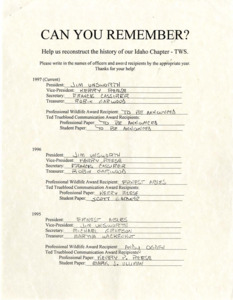 CAN YOU REMEMBER?
Help us reconstruct the history of our Idaho Chapter - TWS.
Please write in the names of officers and award recipients by the appropriate year.
Thanks for your help!
1997 (Current)
President: JIM UNSWORTH
Vice-President: KERRY REESE
Secretary: FRANCES CASSIRER
Treasurer: ROBIN GARWOOD
Professional Wildlife Award Recipients: TO BE ANNOUNCED
Ted Trueblood Communication Award Recipients:
Professional Paper: TO BE ANNOUNCED
Student Paper: TO BE ANNOUNCED
1996
President: JIM UNSWORTH
Vice-President: KERRY REESE
Secretary: FRANCES CASSIRER
Treasurer: ROBIN GARWOOD
Professional Wildlife Award Recipients:
Ted Trueblood Communication Award Recipients:
Professional Paper: KERRY REESE
Student Paper: SCOTT
1995
President:
Vice-President: JIM UNSWORTH
Secretary: MICHAEL
Treasurer: MARTHA
Professional Wildlife Award Recipients:
Ted Trueblood Communication Award Recipients:
Professional Paper: KERRY P. REESE
Student Paper: